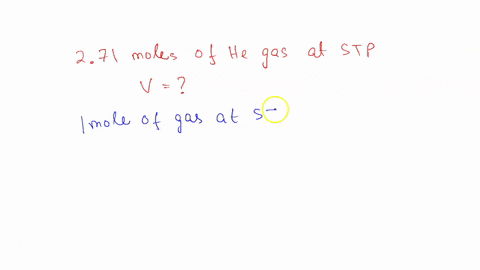 2.71 moles of He gas at STP
V = ?
1 mole of gas at